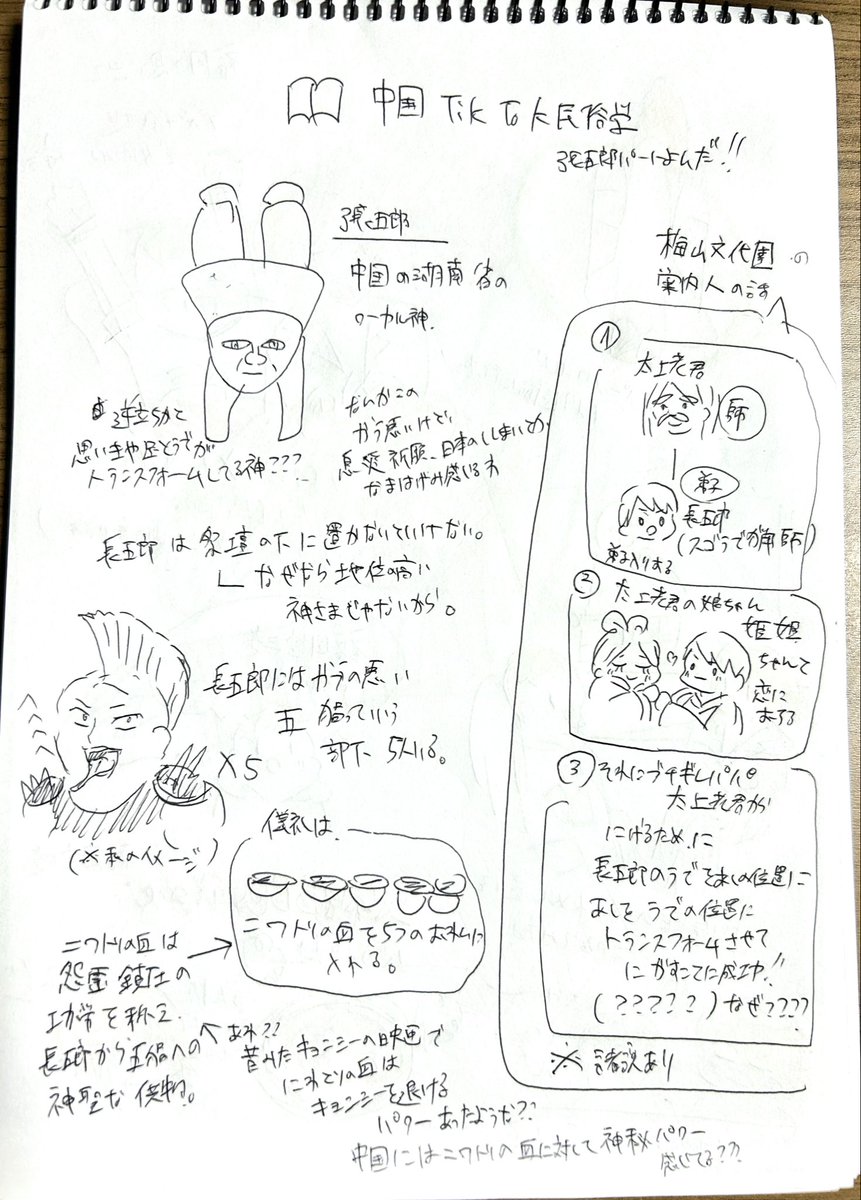 中国 TikTok民俗学
張五郎パートよんだ!!
張五郎
中国の湖南省の
ローカル神.
逆立ちかと
思いきや足とうでが
トランスフォームしてる神???
なんかこの
がら悪いけど
息災祈願、日本のししまいとか
なまはげみ感じるわ
長五郎は祭壇の下に置かないといけない。
なぜなら地位の高い
神さまじゃないから。
長五郎にはガラの悪い
五猖っていう
部下5人いる。
×5
(※私のイメージ)
儀礼は、
ニワトリの血を5つのおわんに
入れる。
ニワトリの血は
怨霊鎮圧の
功労を称え
長五郎から五猖への
神聖な供物。
あれ??
昔みたキョンシーの映画で
にわとりの血は
キョンシーを退ける
パワーあったような??
中国にはニワトリの血に対して神秘パワー
感じてる???
梅山文化園の
案内人の話
①
太上老君
師
弟子
長五郎
(スゴうで猟師)
弟子入りする
② 太上老君の娘ちゃん
姫姐
ちゃんて
恋に
おちる
③ それにブチギレパパ
太上老君が
にげるために
長五郎のうでを足の位置に
あしをうでの位置に
トランスフォームさせて
にがすことに成功!!
(?????)なぜ????
※諸説あり